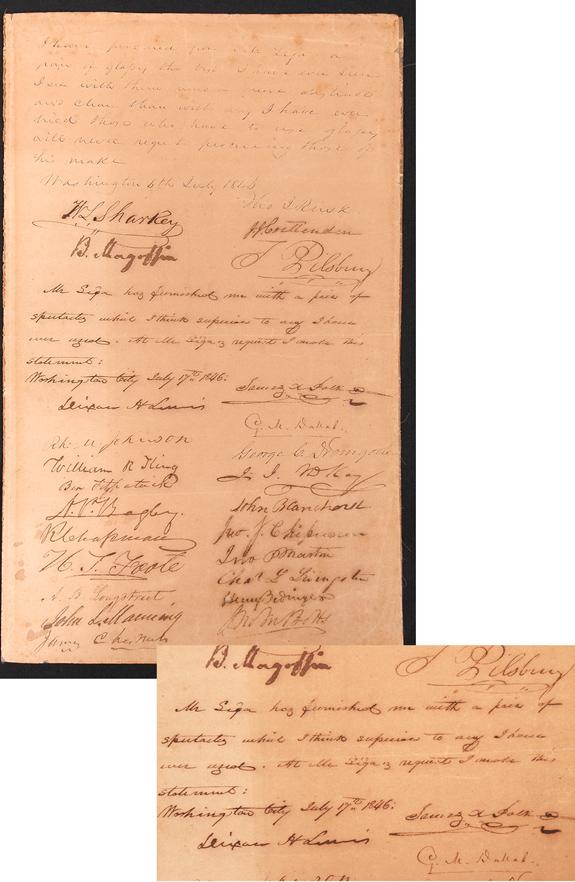 I have procured from Mr Siga a
pair of glasses the best I have ever seen
I see with them more
and clear than with any I have ever
tried those who have to use glasses
will never regret procuring those of
his make
Washington 6th July 1846
Tho J Rusk
W L Sharkey
J J Crittenden
B. Magoffin
T Pilsbury
Mr Siga has furnished me with a pair of
spectacles which I think superior to any I have
ever used. At Mr Siga's request I make this
statement:
Washington City July 17th 1846:
James K Polk
Dixon H Lewis
G. M. Dallas
R. M Johnson
George C Dromgoole
William R King
J. J. McKay
Ben Fitzpatrick
John Blanchard
A. P. Bagby.
Jno. J. Chipman
R Chapman
Jno P Martin
H. S. Foote
Chas L Livingston
A. B. Longstreet
Henry Bedinger
John L Manning
Jno M Botts
James Chesnut
B. Magoffin
T Pilsbury
Mr Siga has furnished me with a pair of
spectacles which I think superior to any I have
ever used. At Mr Siga's request I make this
statement:
Washington City July 17th 1846:
James K Polk
Dixon H Lewis
G. M. Dallas